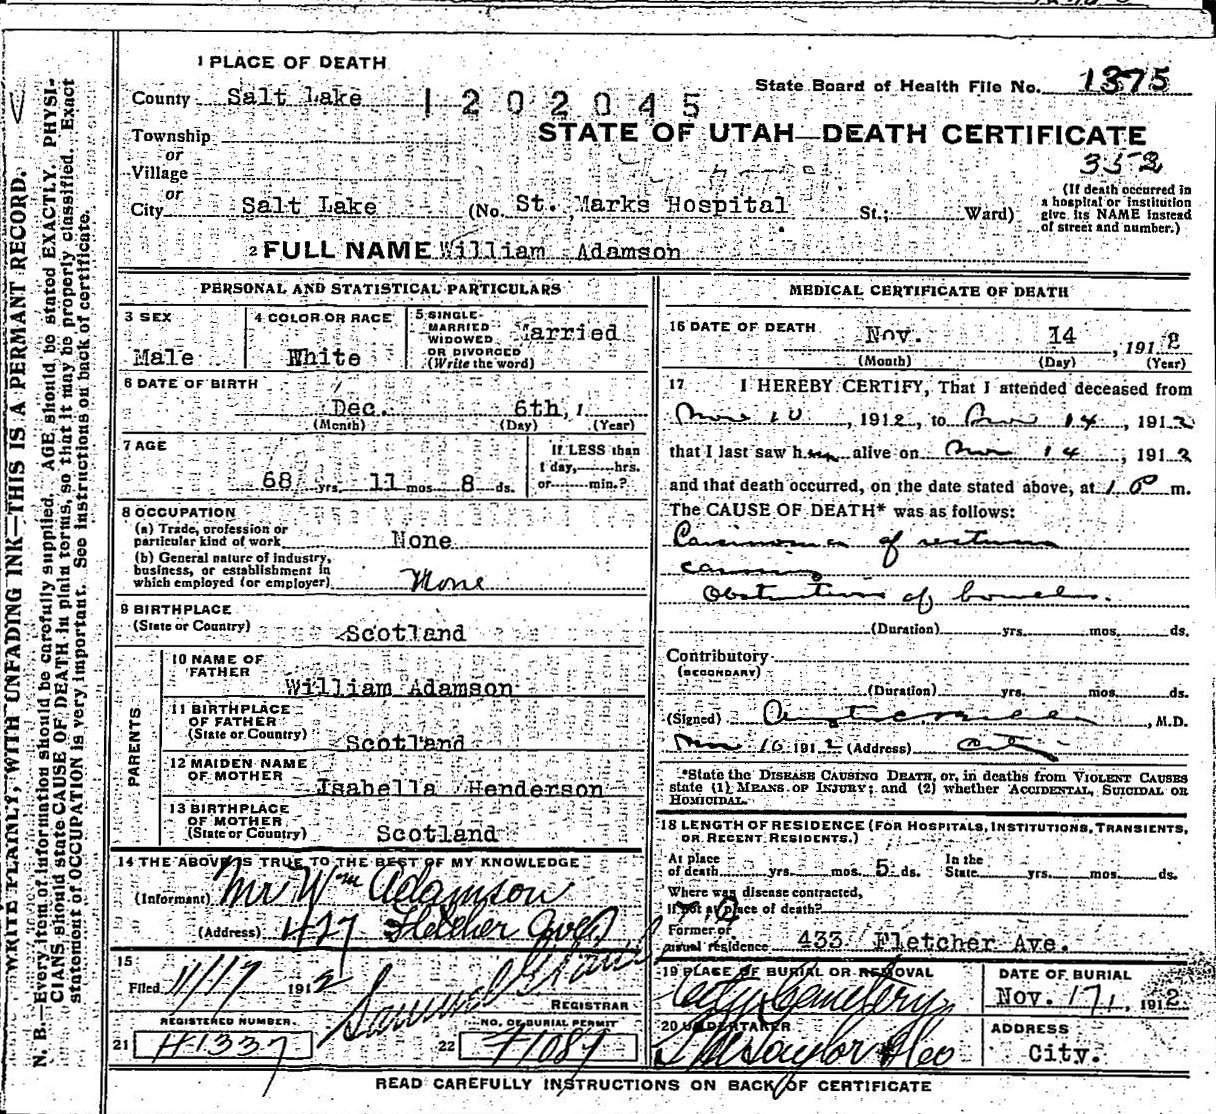 1 PLACE OF DEATH
State Board of Health File No. 1375
County Salt Lake 1202045
Township
STATE OF UTAH—DEATH CERTIFICATE
or
Village
352
or
City Salt Lake (No. St. Marks Hospital St.; Ward)
(If death occurred in
a hospital or institution
give its NAME instead
of street and number.)
2 FULL NAME William Adamson
PERSONAL AND STATISTICAL PARTICULARS
3 SEX
Male
4 COLOR OR RACE
White
5 SINGLE-
MARRIED
WIDOWED
OR DIVORCED
(Write the word)
Married
6 DATE OF BIRTH
Dec. 6th, 1
(Month) (Day) (Year)
7 AGE
68 yrs. 11 mos. 8 ds.
If LESS than
1 day, hrs.
or min.?
8 OCCUPATION
(a) Trade, profession or
particular kind of work None
(b) General nature of industry,
business, or establishment in
which employed (or employer) None
9 BIRTHPLACE
(State or Country) Scotland
PARENTS
10 NAME OF
FATHER
William Adamson
11 BIRTHPLACE
OF FATHER
(State or Country) Scotland
12 MAIDEN NAME
OF MOTHER
Isabella Henderson
13 BIRTHPLACE
OF MOTHER
(State or Country) Scotland
14 THE ABOVE IS TRUE TO THE BEST OF MY KNOWLEDGE
(Informant) Mr Wm Adamson
(Address) 427 Fletcher Ave
15
Filed 11/17 1912
REGISTRAR
REGISTERED NUMBER.
21 H1337
NO. OF BURIAL PERMIT
22 H1087
MEDICAL CERTIFICATE OF DEATH
16 DATE OF DEATH Nov. 14, 1912
(Month) (Day) (Year)
17 I HEREBY CERTIFY, That I attended deceased from
Nov 10, 1912, to Nov 14, 1912
that I last saw him alive on Nov 14, 1912
and that death occurred, on the date stated above, at 1 P m.
The CAUSE OF DEATH* was as follows:
Carcinoma of rectum
causing
Obstruction of bowels.
(Duration) yrs. mos. ds.
Contributory
(SECONDARY)
(Duration) yrs. mos. ds.
(Signed) , M.D.
Nov 16 1912 (Address) City
*State the DISEASE CAUSING DEATH, or, in deaths from VIOLENT CAUSES
state (1) MEANS OF INJURY; and (2) whether ACCIDENTAL, SUICIDAL OR
HOMICIDAL.
18 LENGTH OF RESIDENCE (FOR HOSPITALS, INSTITUTIONS, TRANSIENTS,
OR RECENT RESIDENTS.)
At place
of death yrs. mos. 5 ds.
In the
State yrs. mos. ds.
Where was disease contracted,
If not at place of death?
Former or
usual residence 433 Fletcher Ave.
19 PLACE OF BURIAL OR REMOVAL
City Cemetery
DATE OF BURIAL
Nov. 17, 1912
20 UNDERTAKER
S M Taylor & Co
ADDRESS
City.
READ CAREFULLY INSTRUCTIONS ON BACK OF CERTIFICATE
WRITE PLAINLY, WITH UNFADING INK—THIS IS A PERMANT RECORD.
N. B.—Every item of information should be carefully supplied. AGE should be stated EXACTLY. PHYSI-
CIANS should state CAUSE OF DEATH in plain terms, so that it may be properly classified. Exact
statement of OCCUPATION is very important. See instructions on back of certificate.